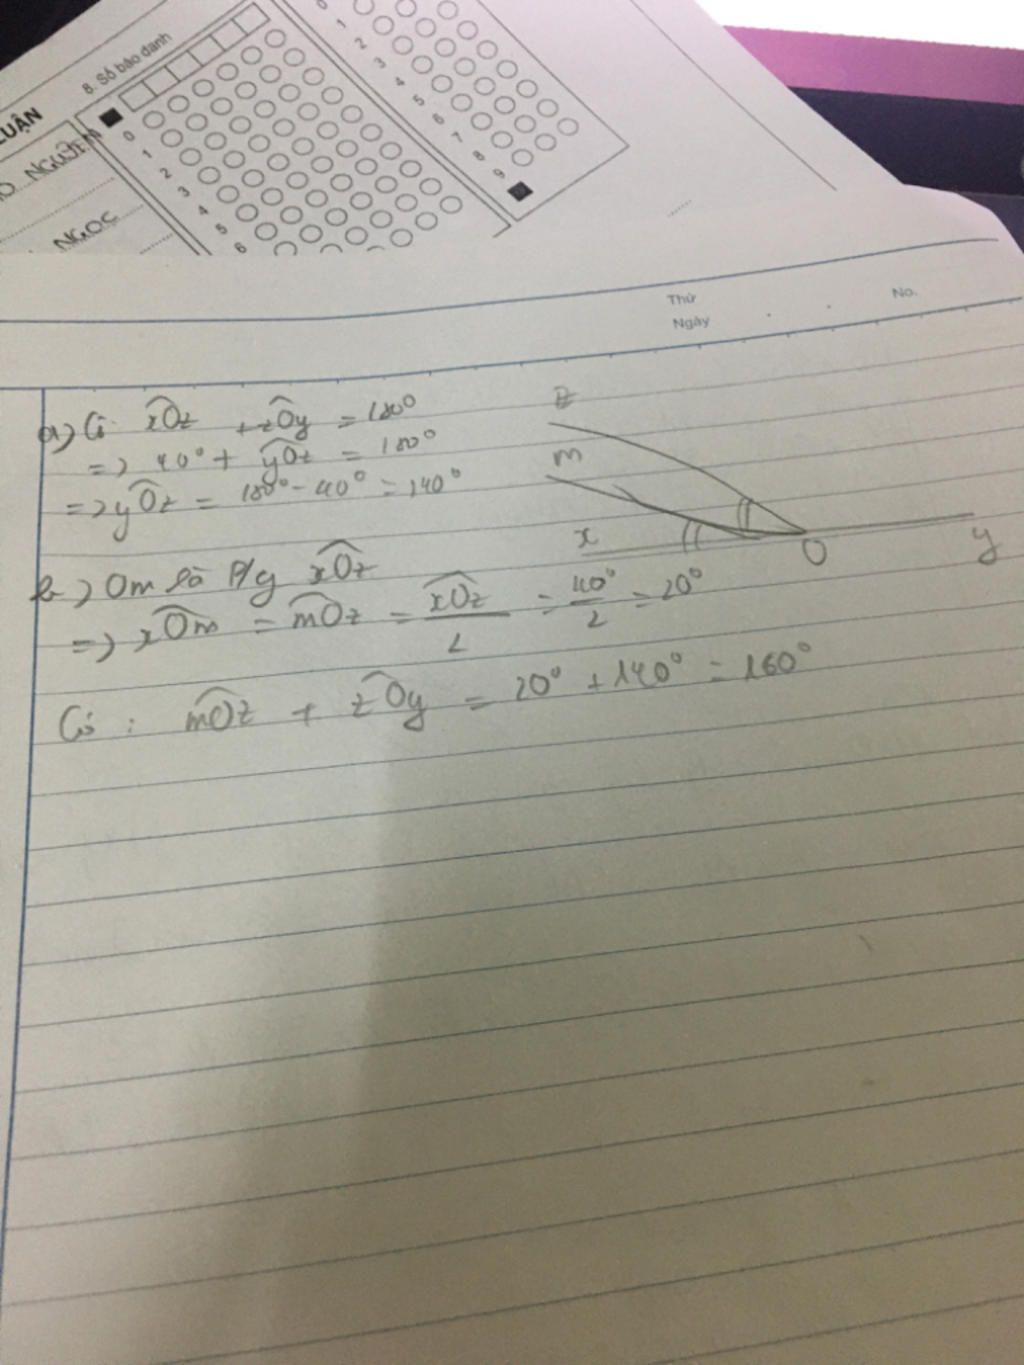 LUẬN
8. Số báo danh
NGUYEN
NGOC
0
1
2
3
4
5
6
1
2
3
4
5
6
7
8
9
Thứ
Ngày
No.
a) Có xOz + zOy = 180°
=> 40° + yOz = 180°
=> yOz = 180° - 40° = 140°
z
m
x
O
y
b) Om là P/g xOz
=> xOm = mOz = xOz/2 = 40°/2 = 20°
Có : mOz + zOy = 20° + 140° = 160°